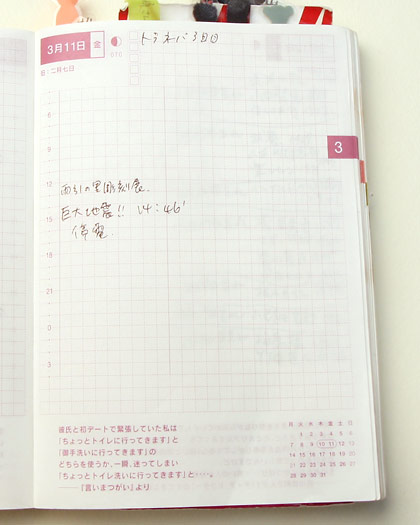 3月11日 金
070
旧:二月七日
トラネパ3日目
3
8
12
西引の里彫刻展
巨大地震!! 14:46'
15
停電
18
21
0
3
彼氏と初デートで緊張していた私は
「ちょっとトイレに行ってきます」と
「御手洗いに行ってきます」の
どちらを使うか、一瞬、迷ってしまい
「ちょっとトイレ洗いに行ってきます」と‥‥。
——『言いまつがい』より
月 火 水 木 金 土 日
1 2 3 4 5 6
7 8 9 10 11 12 13
14 15 16 17 18 19 20
21 22 23 24 25 26 27
28 29 30 31